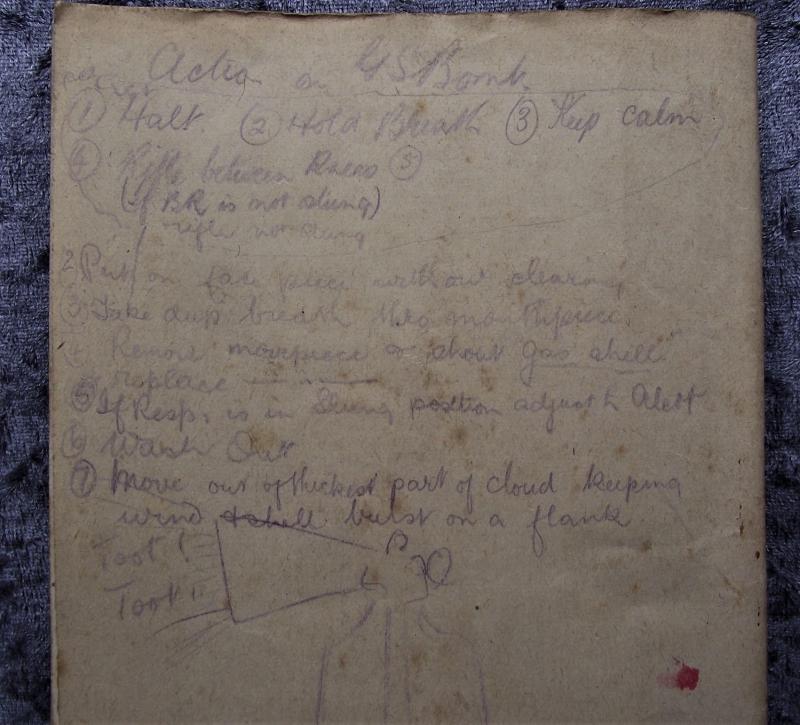 Action on GS Bomb.
① Halt. ② Hold Breath ③ Keep calm
④ Rifle between Knees ⑤
(if BR is not slung)
rifle not slung
2 Put on face piece without clearing
③ Take deep breath thro mouthpiece
④ Remove mouthpiece & shout gas shell
replace
⑤ If Resp. is in Slung position adjust to Alert
⑥ Wash Out
⑦ Move out of thickest part of cloud keeping
wind & shell burst on a flank
Toot!
Toot!!